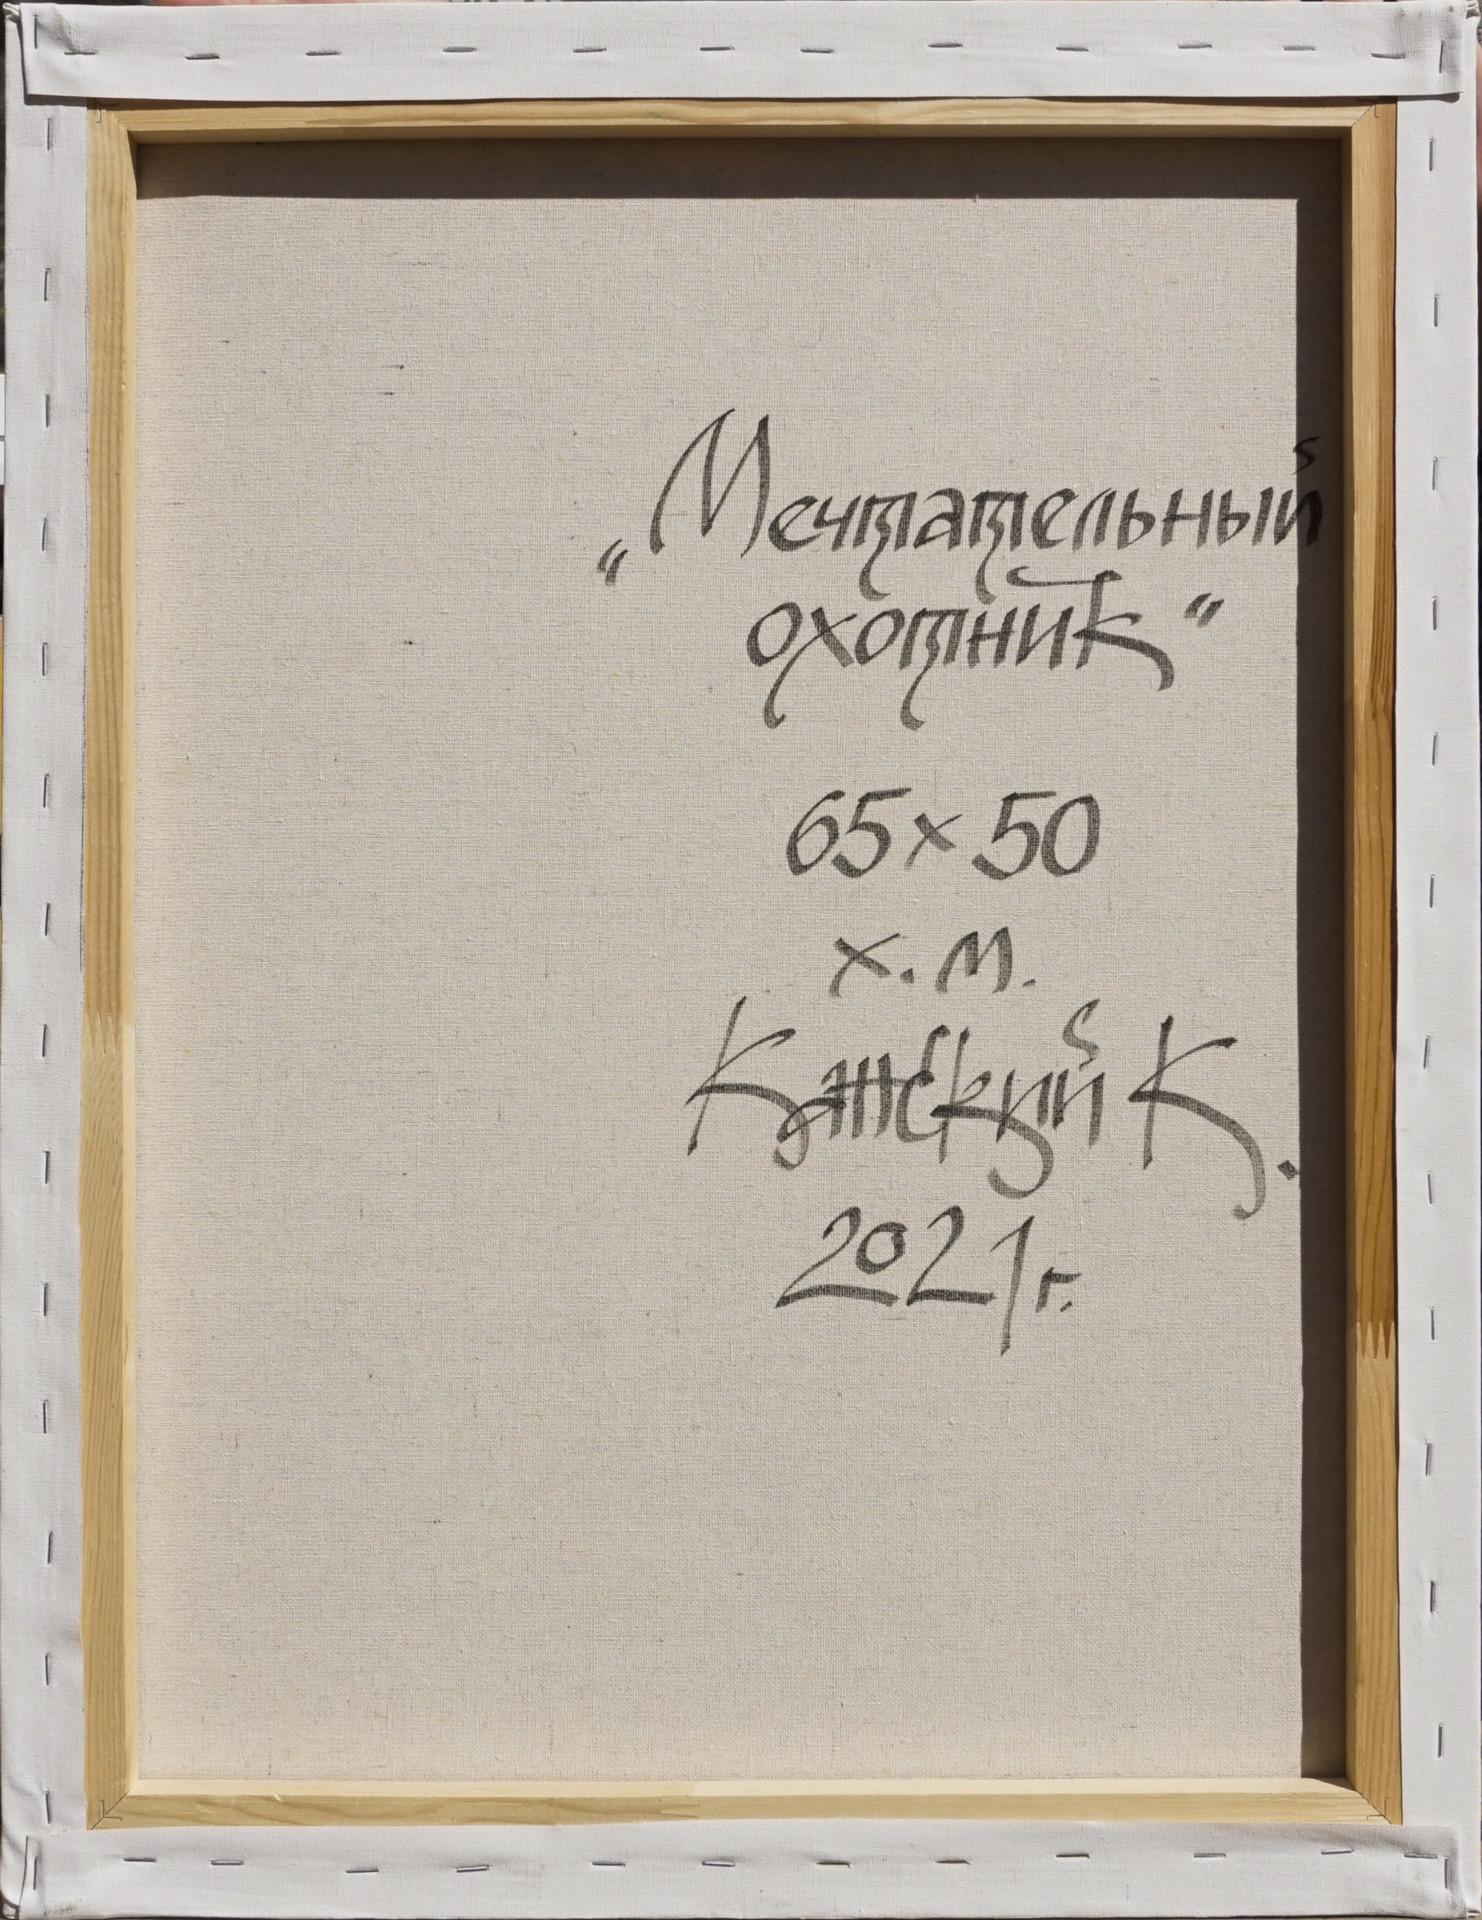 „Мечтательный
охотник“
65 x 50
х. м.
Канский К.
2021 г.